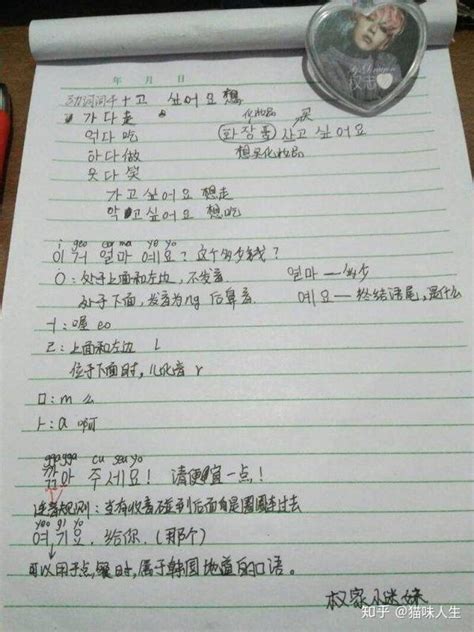 年 月 日
动词词干+고 싶어요 想
가다走 化妆品 买
먹다吃 화장품 사고 싶어요
하다做 想买化妆品
웃다笑
가고싶어요 想走
먹고싶어요 想吃
i geo eor ma ye yo
이거 얼마 예요? 这个多少钱?
ㅇ:处于上面和左边,不发音. 얼마 — 多少
处于下面,发音为ng后鼻音. 예요 — 终结语尾,是什么
ㅓ:喔 eo
ㄹ:上面和左边 l
位于下面时,儿化音 r
ㅁ:m 么
ㅏ:a 啊
깎아 주세요! 请便宜一点!
连音规则:
yeo gi yo
여기요. 给你.(那个)
可以用于点餐时,属于韩国地道的口语。
权家小迷妹
知乎 @猫味人生